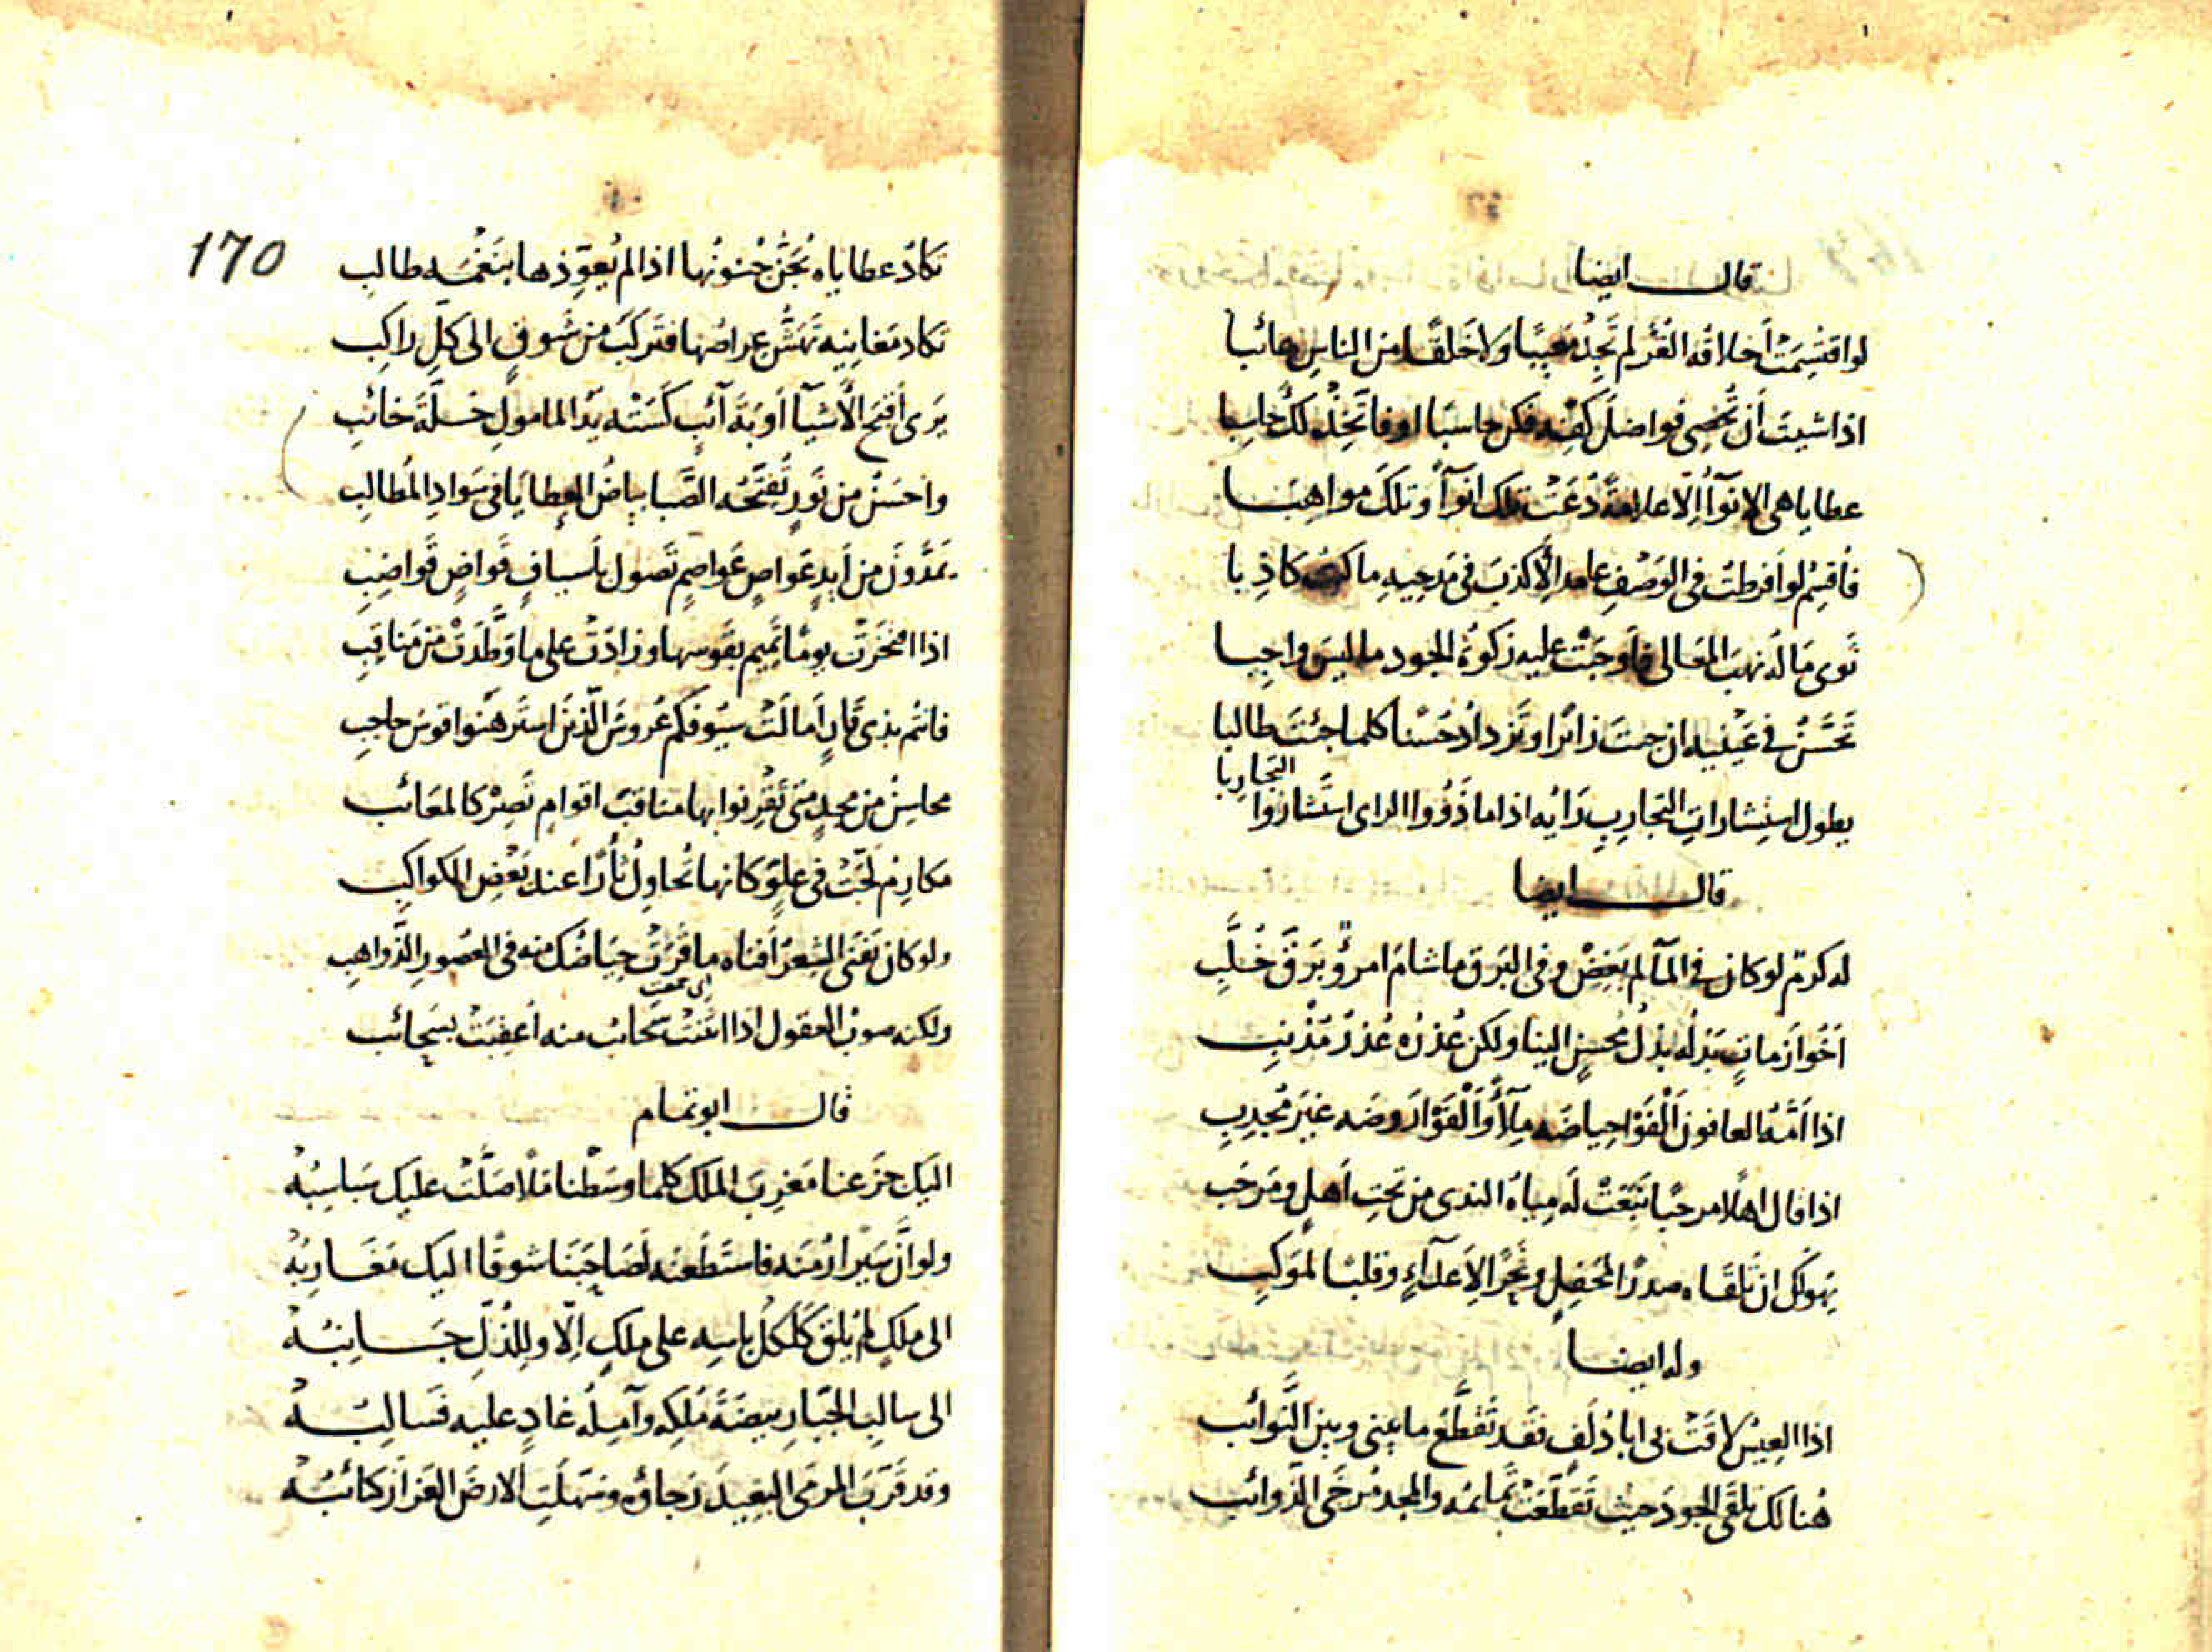 قال ايضا
لواقتسمت اخلاقه الغر لم تجد معيبا ولا خلقا من الناس عائبا
اذا شيت أن تحصى فواضل كفه فكن حاسبا او فاتخذ لك حاسبا
عطايا هى الانوآء إلا علامة دعت تلك انوآء وتلك مواهبا
فأقسم لو افرطت فى الوصف عامدا لأكذب فى مدحيه ما كنت كاذبا
ثوى ماله نهب المعالى فأوجبت عليه زكوة الجود ما ليس واجبا
تحسن فى عينيه ان جئت زائرا وتزداد حسنا كلما جئت طالبا
التجاربا
بطول استشارات التجارب رايه اذا ما ذوو الراى استشاروا
قال ايضا
له كرم لو كان فى المآ لم يغض وفى البرق ما شام امرؤ برق خلب
اخو ازمات بذله بذل محسن الينا ولكن عذره عذر مذنب
اذا امه العافون ألفوا حياضه ملآء وألفوا روضه غير مجدب
اذا قال اهلا مرحبا نبعت له مياه الندى من تحت اهل ومرحب
يهولك ان تلقاه صدرا لمحفل ونحرا لاعدآء وقلبا لموكب
وله ايضا
اذا العيس لاقت بى ابا دلف فقد تقطع ما بينى وبين النوائب
هنالك تلقى الجود حيث تقطعت تمائمه والمجد مرخى الذوائب
170
تكاد عطاياه تجن جنونها اذا لم يعوذها بنغمه طالب
تكاد مغانيه تهش عراصها فتركب من شوق الى كل راكب
يرى أقبح الأشيآ أوبة آئب كسته يد المامول حلة خائب
واحسن من نور تفتحه الصبا بياض العطايا فى سواد المطالب
يمدون من أيد عواص عواصم تصول بأسياف قواض قواضب
اذا افتخرت يوما تميم بقوسها وزادت على ما وطدت من مناقب
فانتم بذى قار أمالت سيوفكم عروش الذين استرهنوا قوس حاجب
محاسن من مجد متى تقرنوا بها مناقب اقوام تصر كالمعائب
مكارم لجت فى علو كانها تحاول ثأرا عند بعض الكواكب
ولو كان يفنى الشعر أفناه ما قرت حياضك منه فى العصور الذواهب
ولكنه صوب العقول اذا انثنت سحائب منه أعقبت بسحائب
قال ابو تمام
اليك جزعنا مغرب الملك كلما وسطنا ملا صلت عليك سباسبه
ولو أن سيرا رمنه فاستطعنه لصاحبنا شوقا اليك مغاربه
الى ملك لم يلق كلكل باسه على ملك إلا وللذل جانبه
الى سالب الجبار بيضة ملكه وآمله غاد عليه فسالبه
وقد قرب المرمى البعيد رجاؤه وسهلت الارض العزاز كتائبه